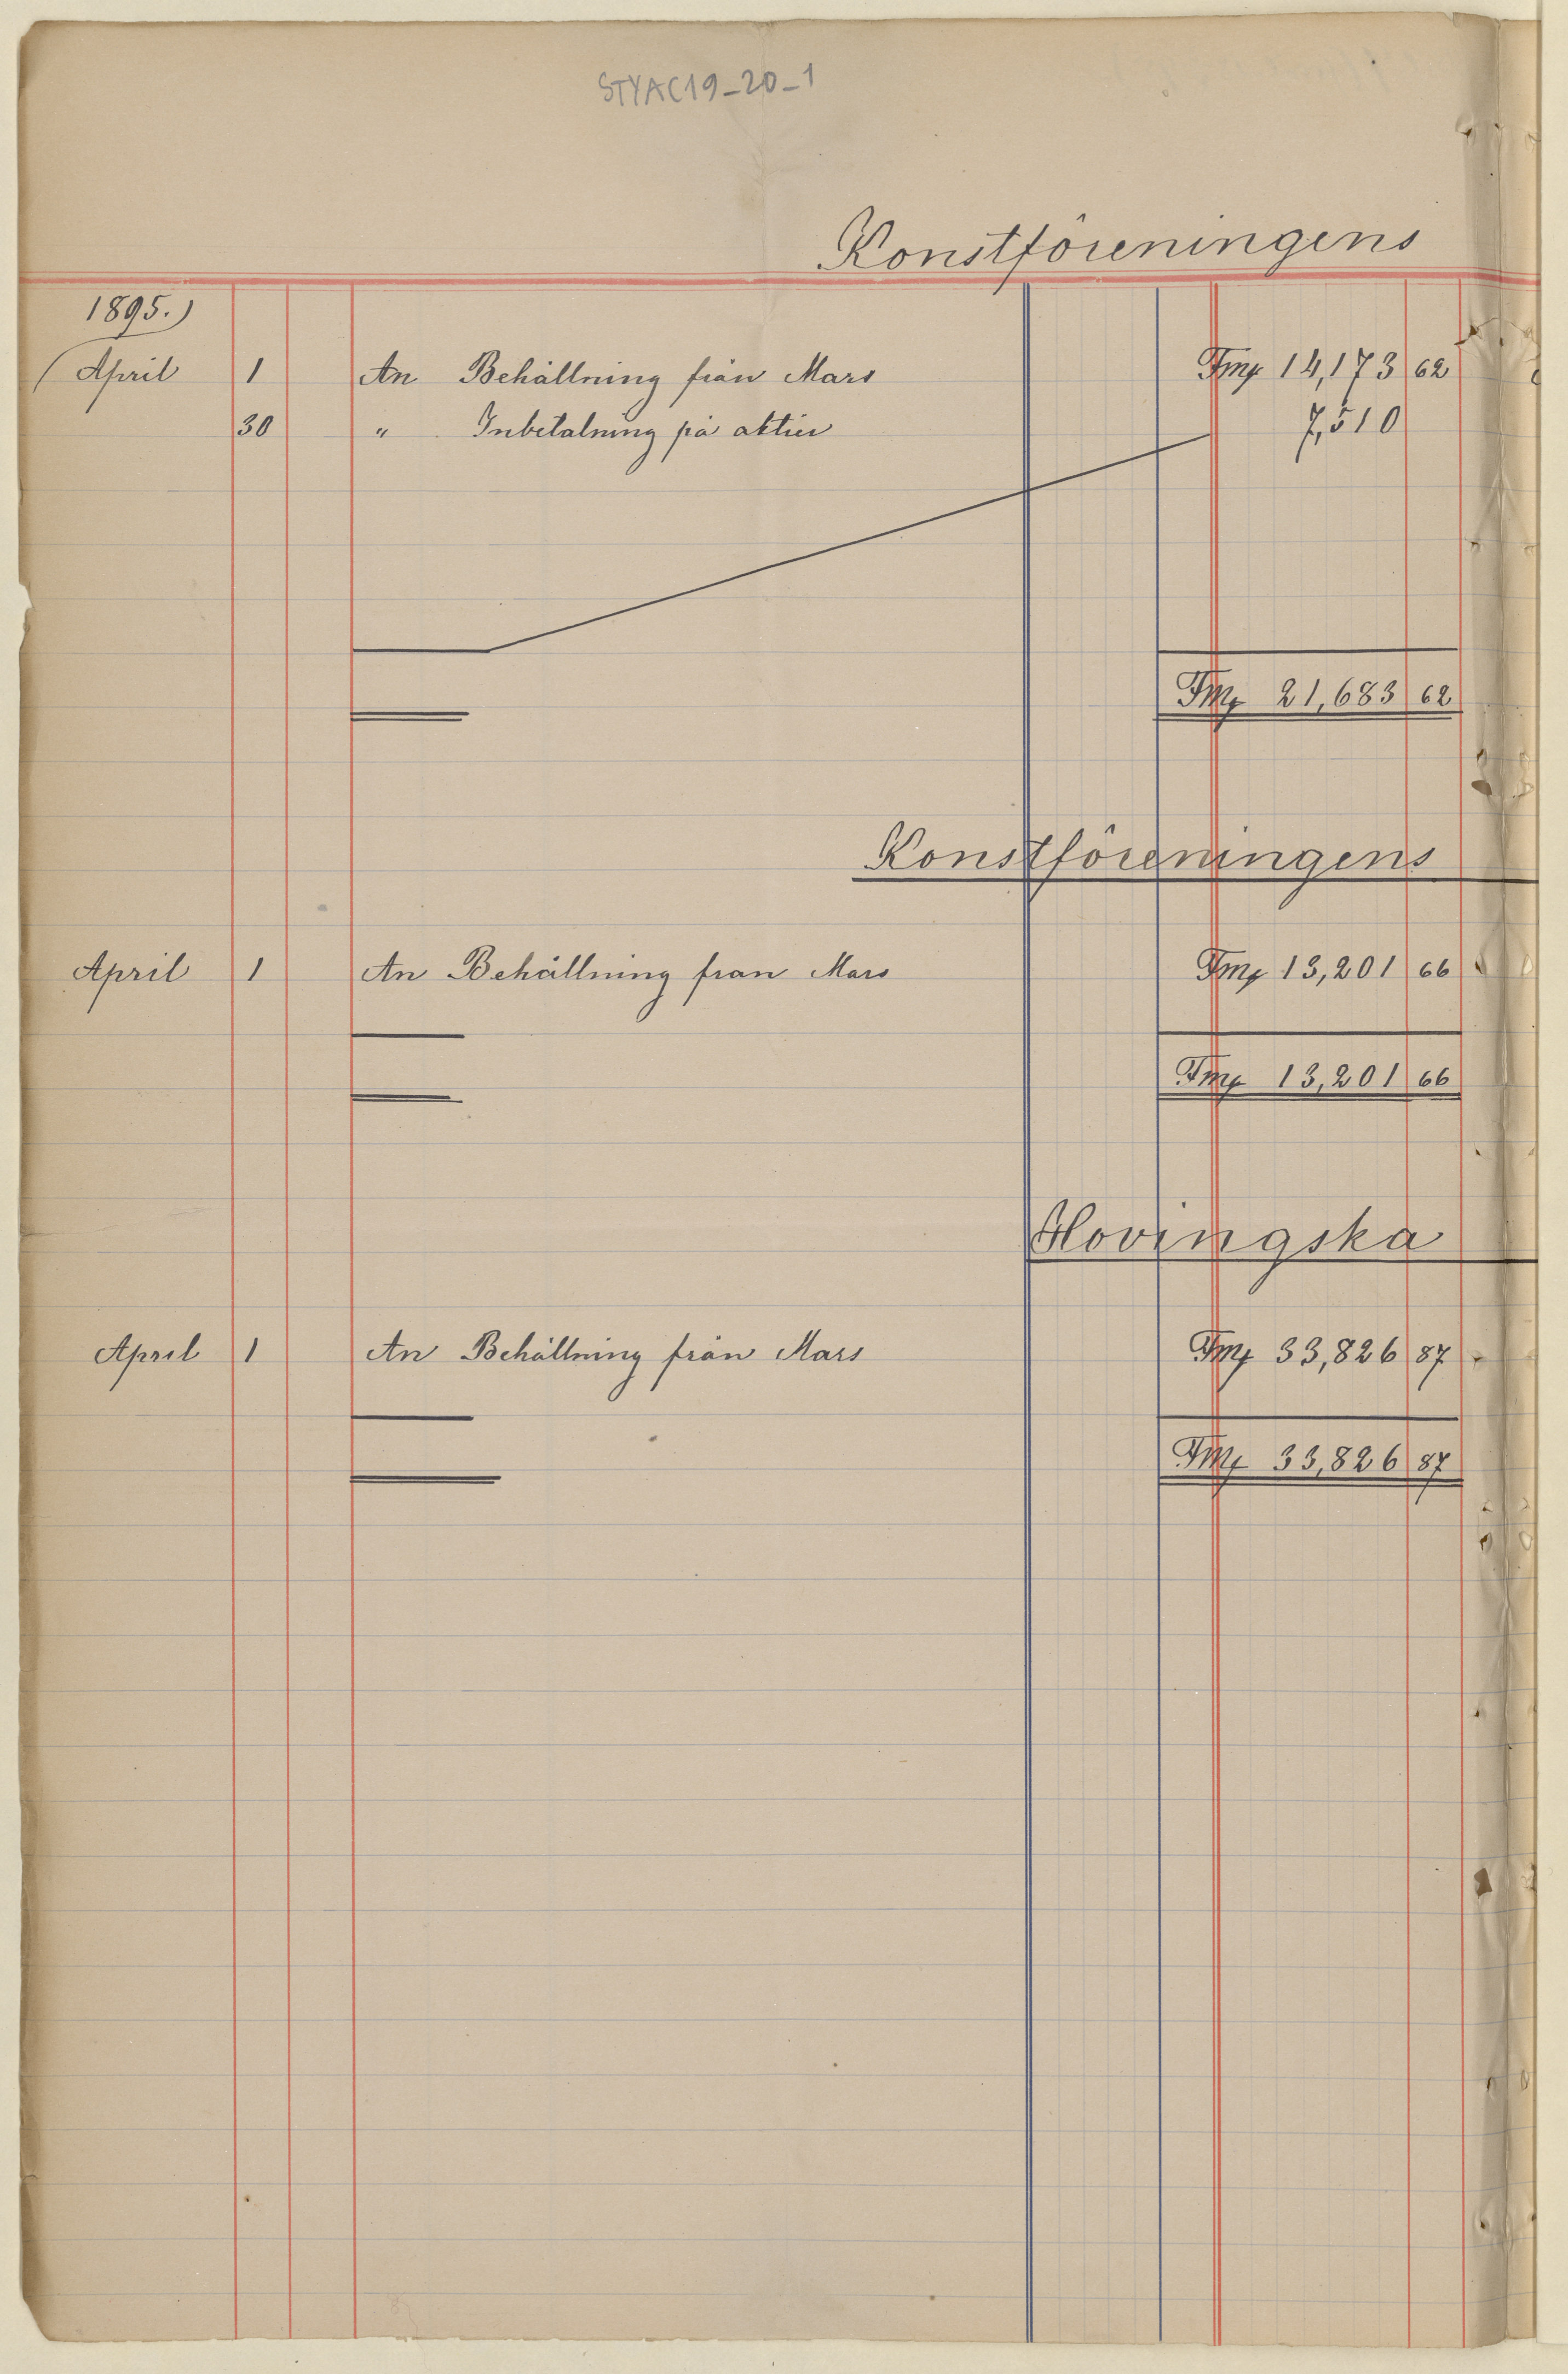 STYAC19_20_1
Konstföreningens
1895.)
April 1 An Behållning från Mars Fmk 14,173 62
30 " Inbetalning på aktier 7,510
Fmk 21,683 62
Konstföreningens
April 1 An Behållning från Mars Fmk 13,201 66
Fmk 13,201 66
Hovingska
April 1 An Behållning från Mars Fmk 33,826 87
Fmk 33,826 87